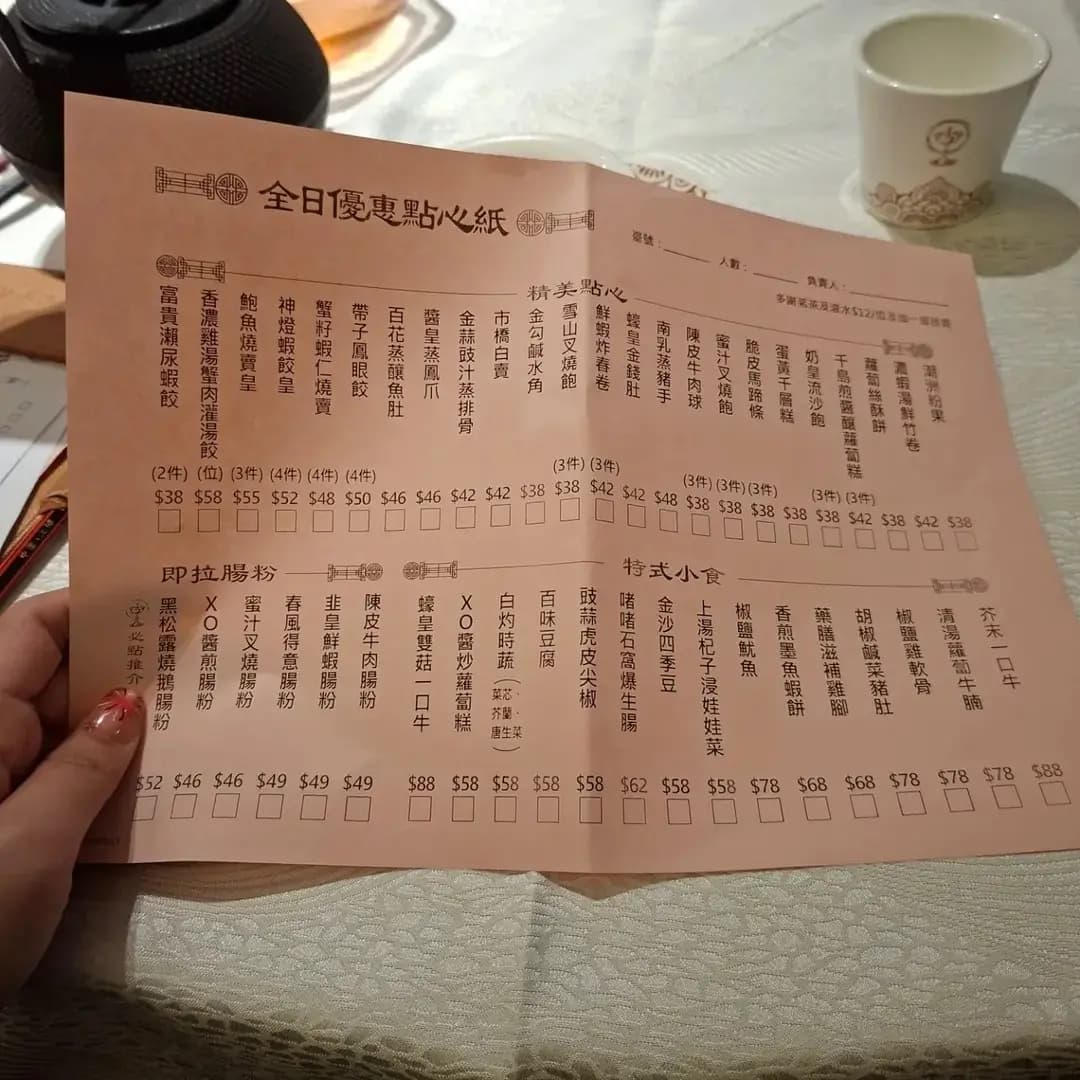 全日優惠點心紙
臺號：
人數：
負責人：
精美點心
富貴瀨尿蝦餃
香濃雞湯蟹肉灌湯餃
鮑魚燒賣皇
神燈蝦餃皇
蟹籽蝦仁燒賣
帶子鳳眼餃
百花蒸釀魚肚
醬皇蒸鳳爪
金蒜豉汁蒸排骨
市橋白賣
金勾鹹水角
雪山叉燒飽
鮮蝦炸春卷
蠔皇金錢肚
南乳蒸豬手
陳皮牛肉球
蜜汁叉燒飽
脆皮馬蹄條
蛋黃千層糕
奶皇流沙飽
千島煎醬釀蘿蔔糕
蘿蔔絲酥餅
濃蝦湯鮮竹卷
潮洲粉果
(2件) (位) (3件) (4件) (4件) (4件) (3件) (3件) (3件) (3件) (3件) (3件) (3件)
$38 $58 $55 $52 $48 $50 $46 $46 $42 $42 $38 $38 $42 $42 $48 $38 $38 $38 $38 $38 $42 $38 $42 $38
即拉腸粉
必點推介
黑松露燒鵝腸粉
XO醬煎腸粉
蜜汁叉燒腸粉
春風得意腸粉
韭皇鮮蝦腸粉
陳皮牛肉腸粉
$52 $46 $46 $49 $49 $49
特式小食
蠔皇雙菇一口牛
XO醬炒蘿蔔糕
白灼時蔬（菜芯、芥蘭、唐生菜）
百味豆腐
豉蒜虎皮尖椒
啫啫石窩爆生腸
金沙四季豆
上湯杞子浸娃娃菜
椒鹽魷魚
香煎墨魚蝦餅
藥膳滋補雞腳
胡椒鹹菜豬肚
椒鹽雞軟骨
清湯蘿蔔牛腩
芥末一口牛
$88 $58 $58 $58 $58 $62 $58 $58 $78 $68 $68 $78 $78 $78 $88